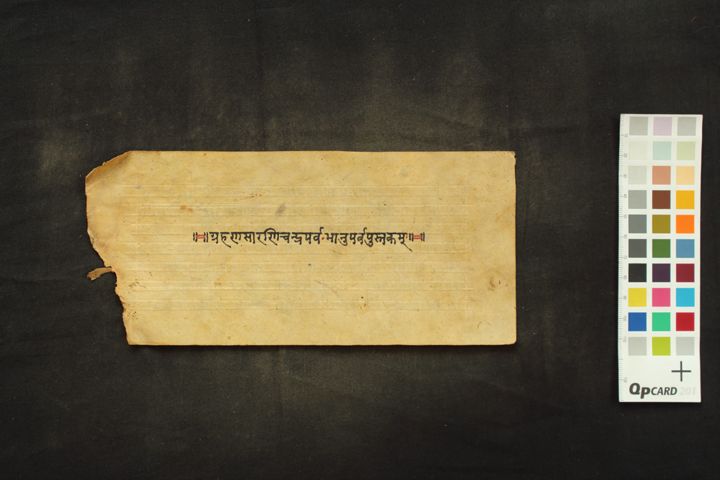 ॥=॥ग्रहणसारणिचन्द्रपर्वभानुपर्वपुस्तकम्॥=॥
QPCARD 201